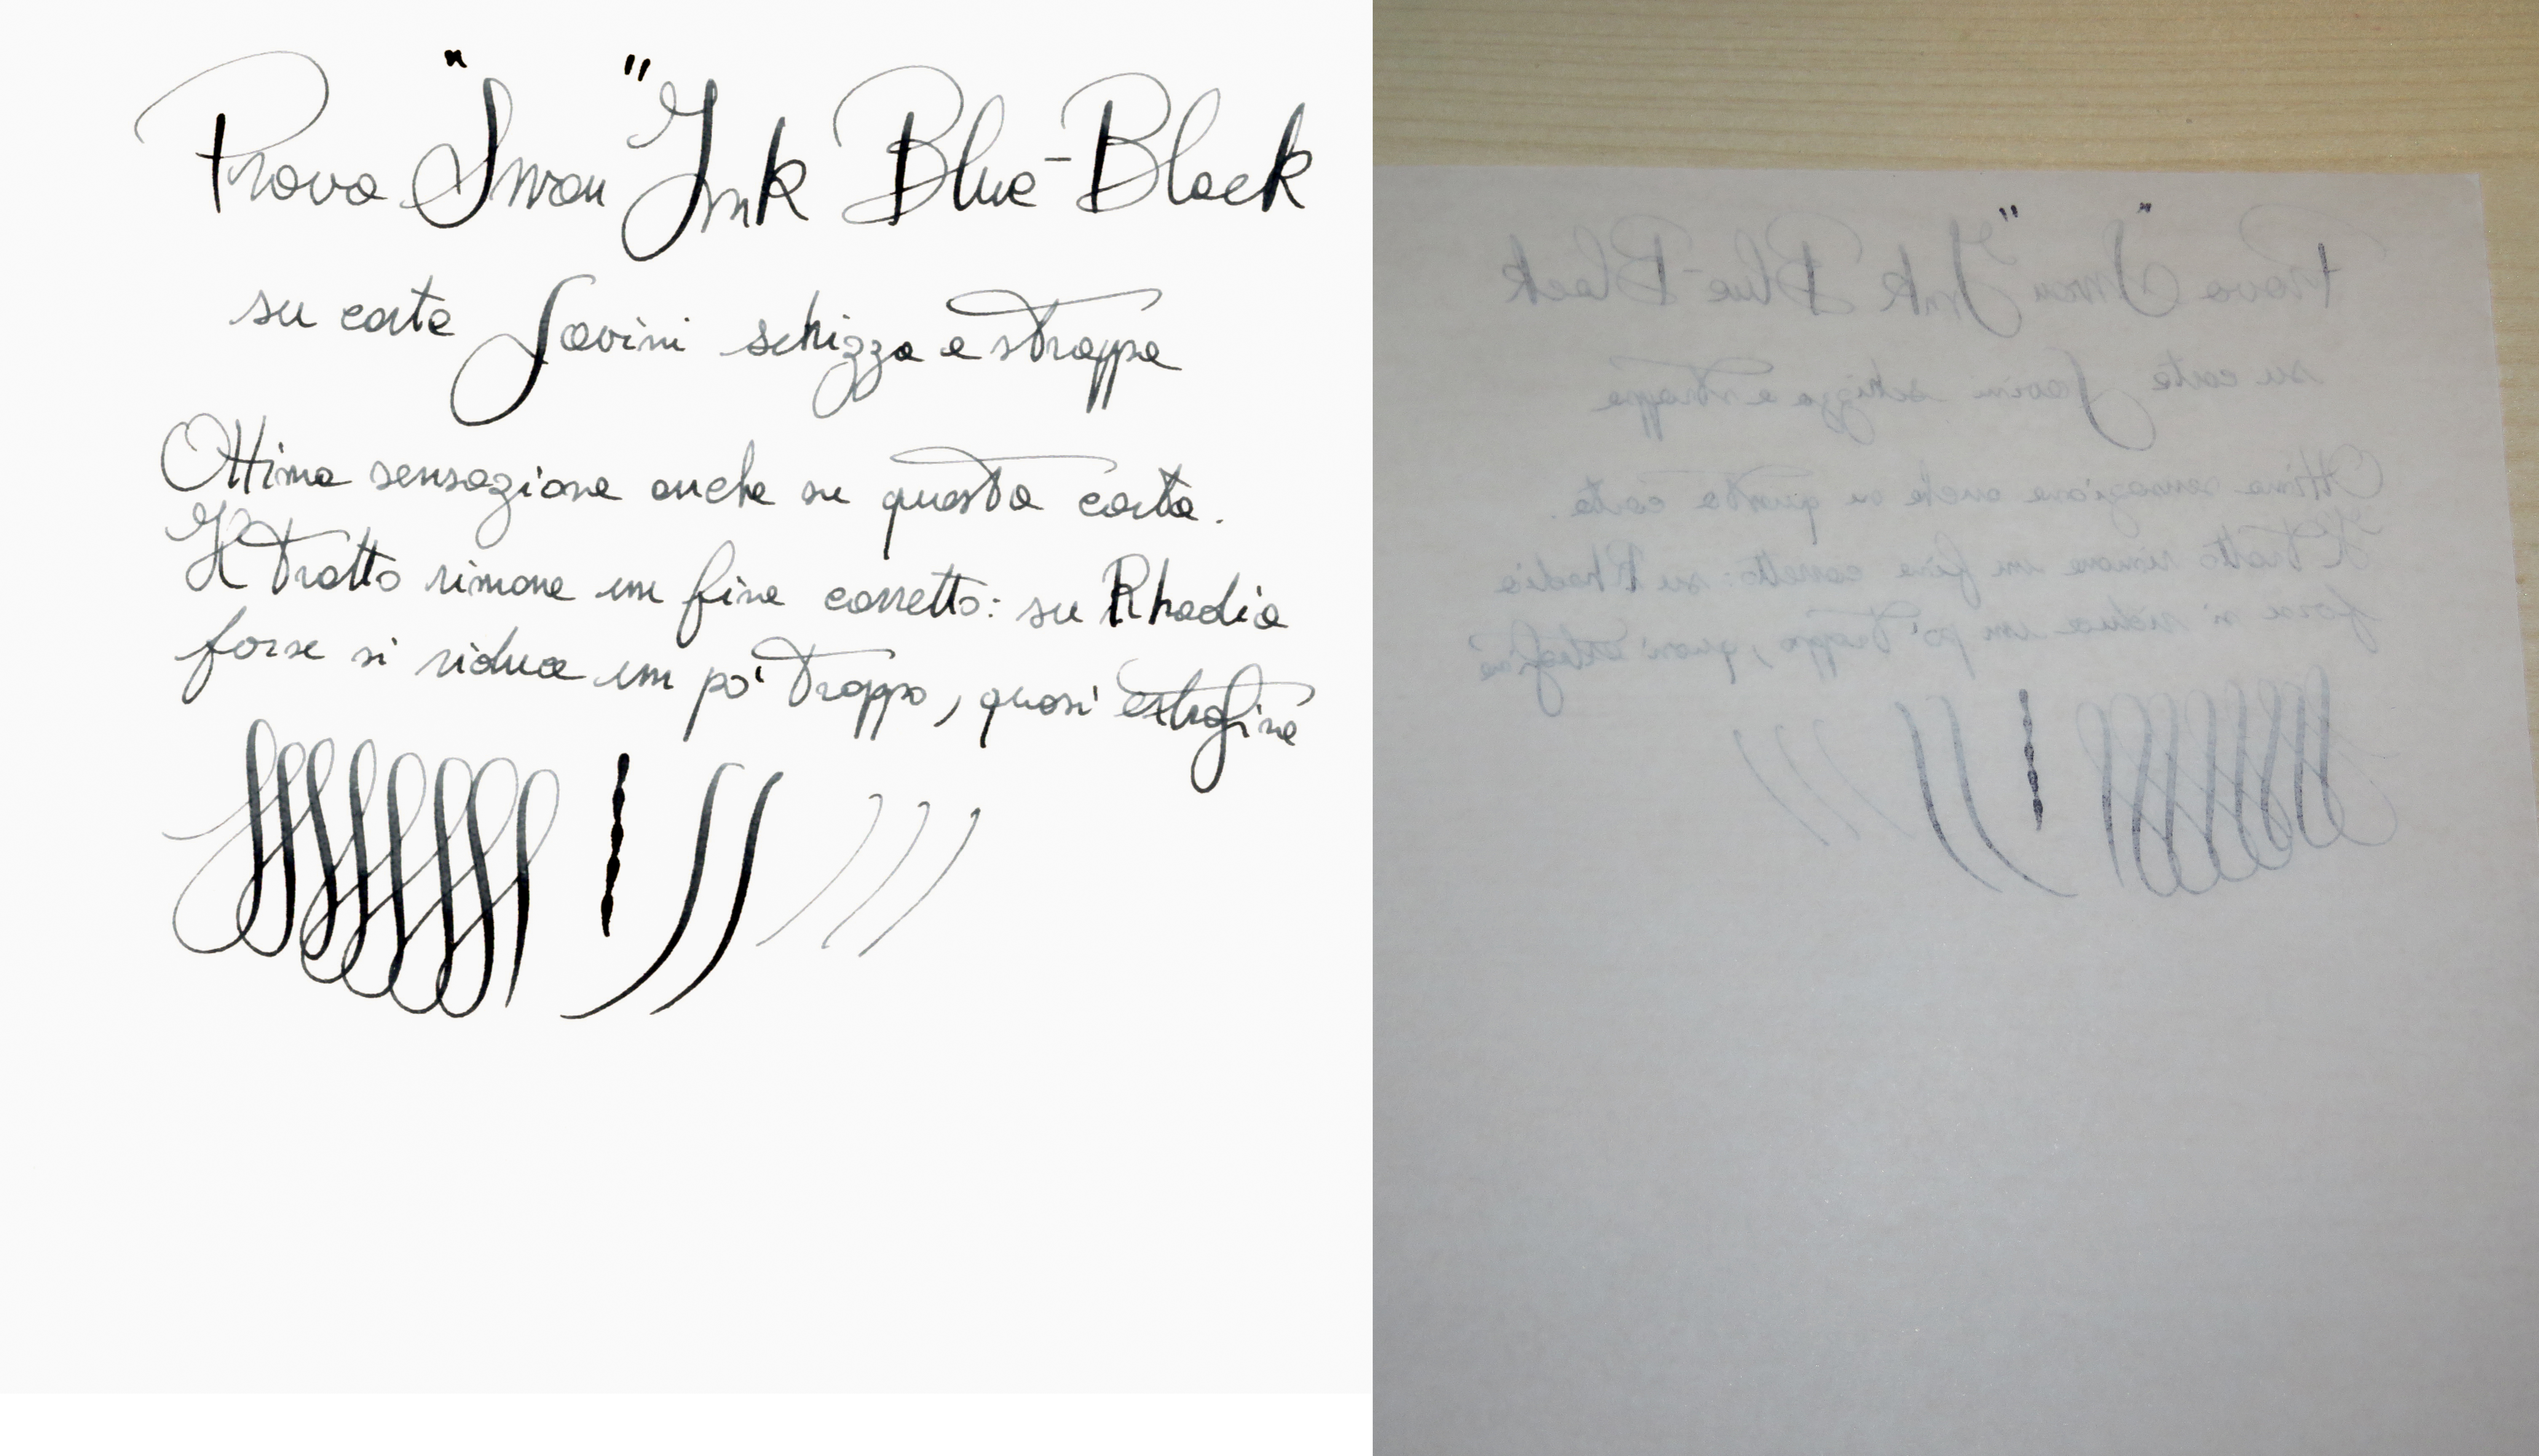 Prova "Swan" Ink Blue-Black
su carta Savini schizza e strappa
Ottima sensazione anche su questa carta.
Il tratto rimane un fine corretto: su Rhodia
forse si riduce un po' troppo, quasi extrafine